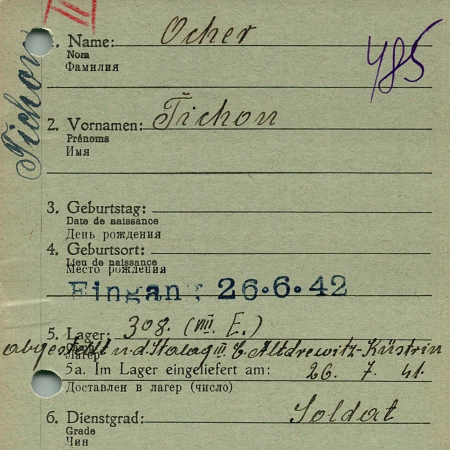 III
485
Tichon
1. Name: Ocher
Nom
Фамилия
2. Vornamen: Tichon
Prénoms
Имя
3. Geburtstag:
Date de naissance
День рождения
4. Geburtsort:
Lieu de naissance
Место рождения
Eingang: 26.6.42
5. Lager: 308. (VIII. E.)
Camp
Лагерь
abgestellt n.d. Stalag III. C. Altdrewitz-Küstrin
5a. Im Lager eingeliefert am: 26. 7. 41.
Доставлен в лагерь (число)
6. Dienstgrad: Soldat
Grade
Чин